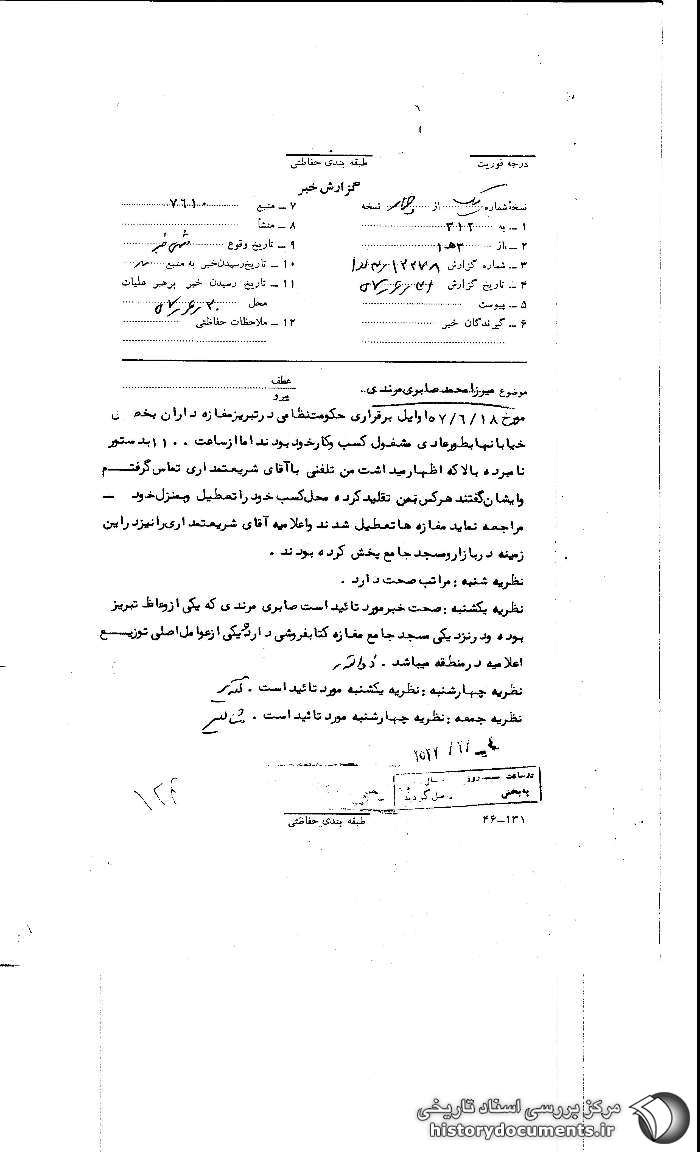 درجه فوریت
طبقه بندی حفاظتی
گزارش خبر
نسخهٔ شماره یک از چهار نسخه
۱ ـ به ۳۱۲
۲ ـ از ۳ه‍۱
۳ ـ شماره گزارش
۴ ـ تاریخ گزارش
۵ ـ پیوست
۶ ـ گیرندگان خبر
۷ ـ منبع ۷۶۱۰
۸ ـ منشأ
۹ ـ تاریخ وقوع متن خبر
۱۰ ـ تاریخ رسیدن خبر به منبع
۱۱ ـ تاریخ رسیدن خبر برهبر عملیات
محل
۱۲ ـ ملاحظات حفاظتی
موضوع میرزا محمد صابری مرندی
عطف
پیرو
مورخ ۵۷/۶/۱۸ اوایل برقراری حکومت نظامی در تبریز مغازه داران بخصوص
خیابانها بطور عادی مشغول کسب و کار خود بودند اما از ساعت ۱۱۰۰ بدستور
نامبرده بالا که اظهار میداشت من تلفنی با آقای شریعتمداری تماس گرفتم
و ایشان گفتند هرکس بمن تقلید کرده محل کسب خود را تعطیل و بمنزل خود ـ
مراجعه نماید مغازه ها تعطیل شدند و اعلامیه آقای شریعتمداری را نیز در این
زمینه در بازار و مسجد جامع پخش کرده بودند .
نظریه شنبه : مراتب صحت دارد .
نظریه یکشنبه : صحت خبر مورد تائید است صابری مرندی که یکی از وعاظ تبریز
بوده و در نزدیکی مسجد جامع مغازه کتابفروشی دارد و یکی از عوامل اصلی توزیع
اعلامیه در منطقه میباشد .
نظریه چهارشنبه : نظریه یکشنبه مورد تائید است .
نظریه جمعه : نظریه چهارشنبه مورد تائید است .
در ساعت روز سال
به بخش
۱۲۴
طبقه بندی حفاظتی
۴۶-۱۳۱
مرکز بررسی اسناد تاریخی
historydocuments.ir